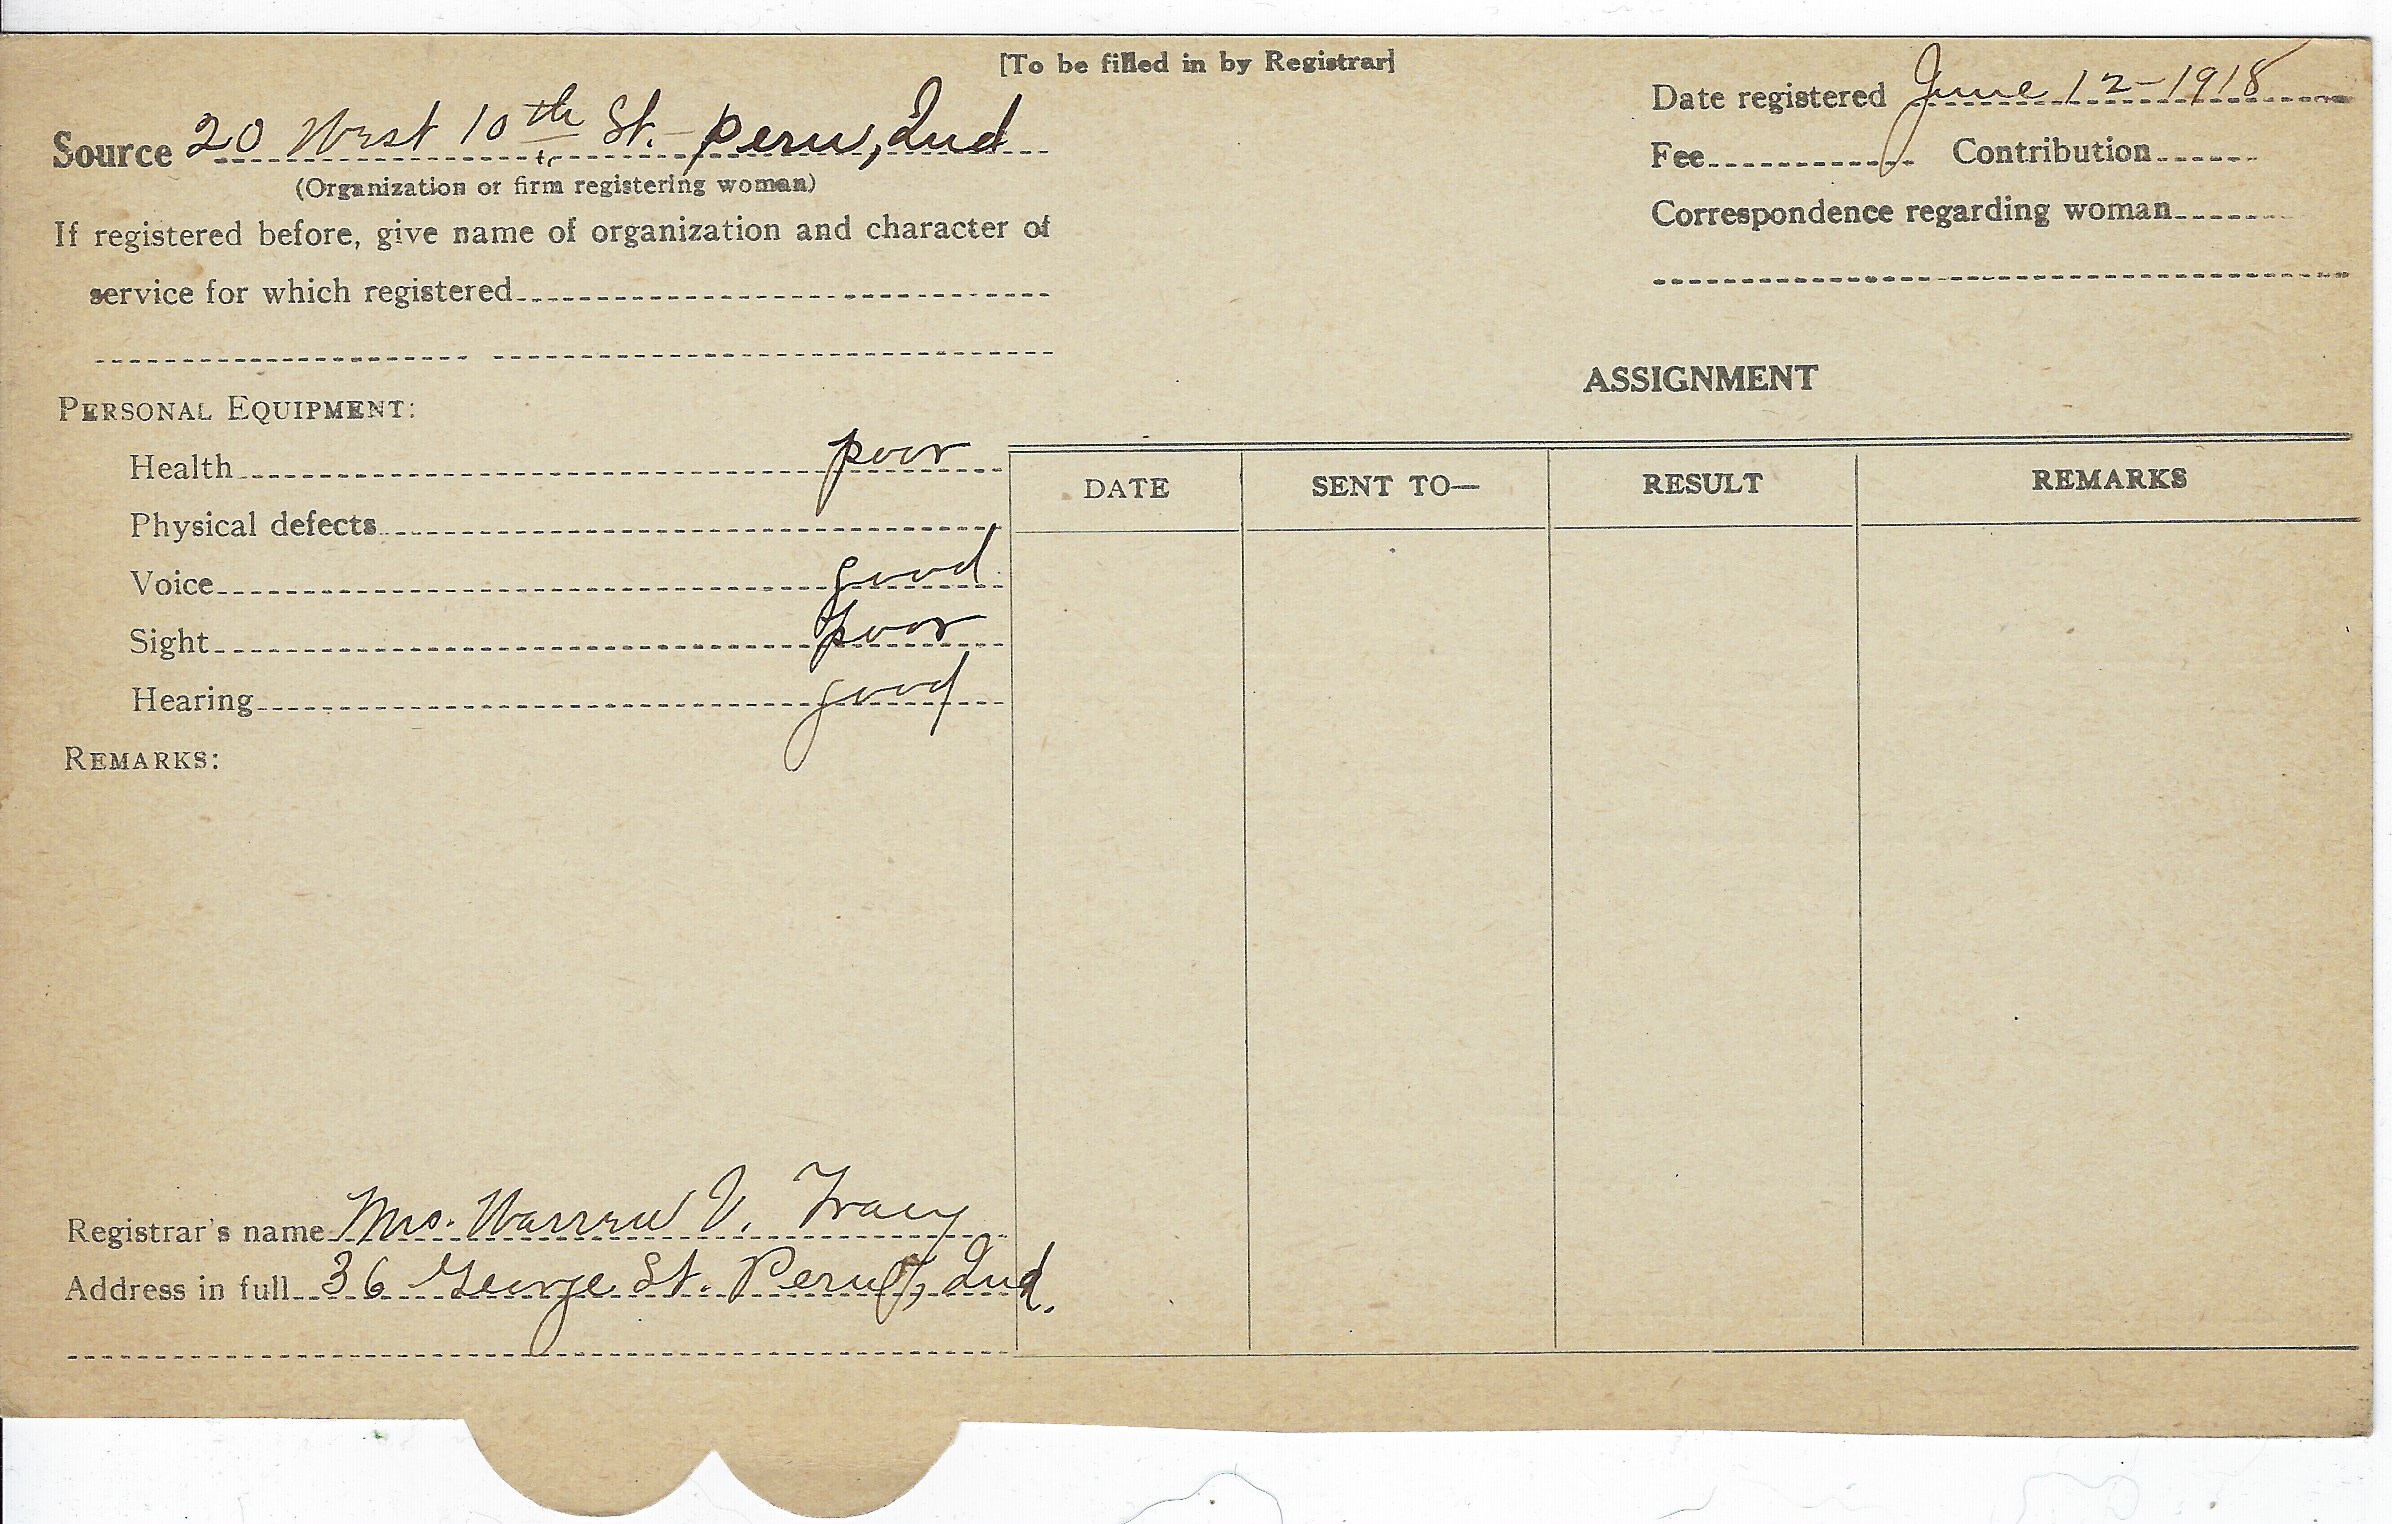 [To be filled in by Registrar]
Source 20 West 10th St. Peru, Ind
(Organization or firm registering woman)
If registered before, give name of organization and character of
service for which registered
Date registered June 12-1918
Fee Contribution
Correspondence regarding woman
PERSONAL EQUIPMENT:
Health poor
Physical defects
Voice good
Sight poor
Hearing good
REMARKS:
Registrar's name Mrs. Warren V. Tracy
Address in full 36 George St. Peru, Ind.
ASSIGNMENT
DATE SENT TO— RESULT REMARKS